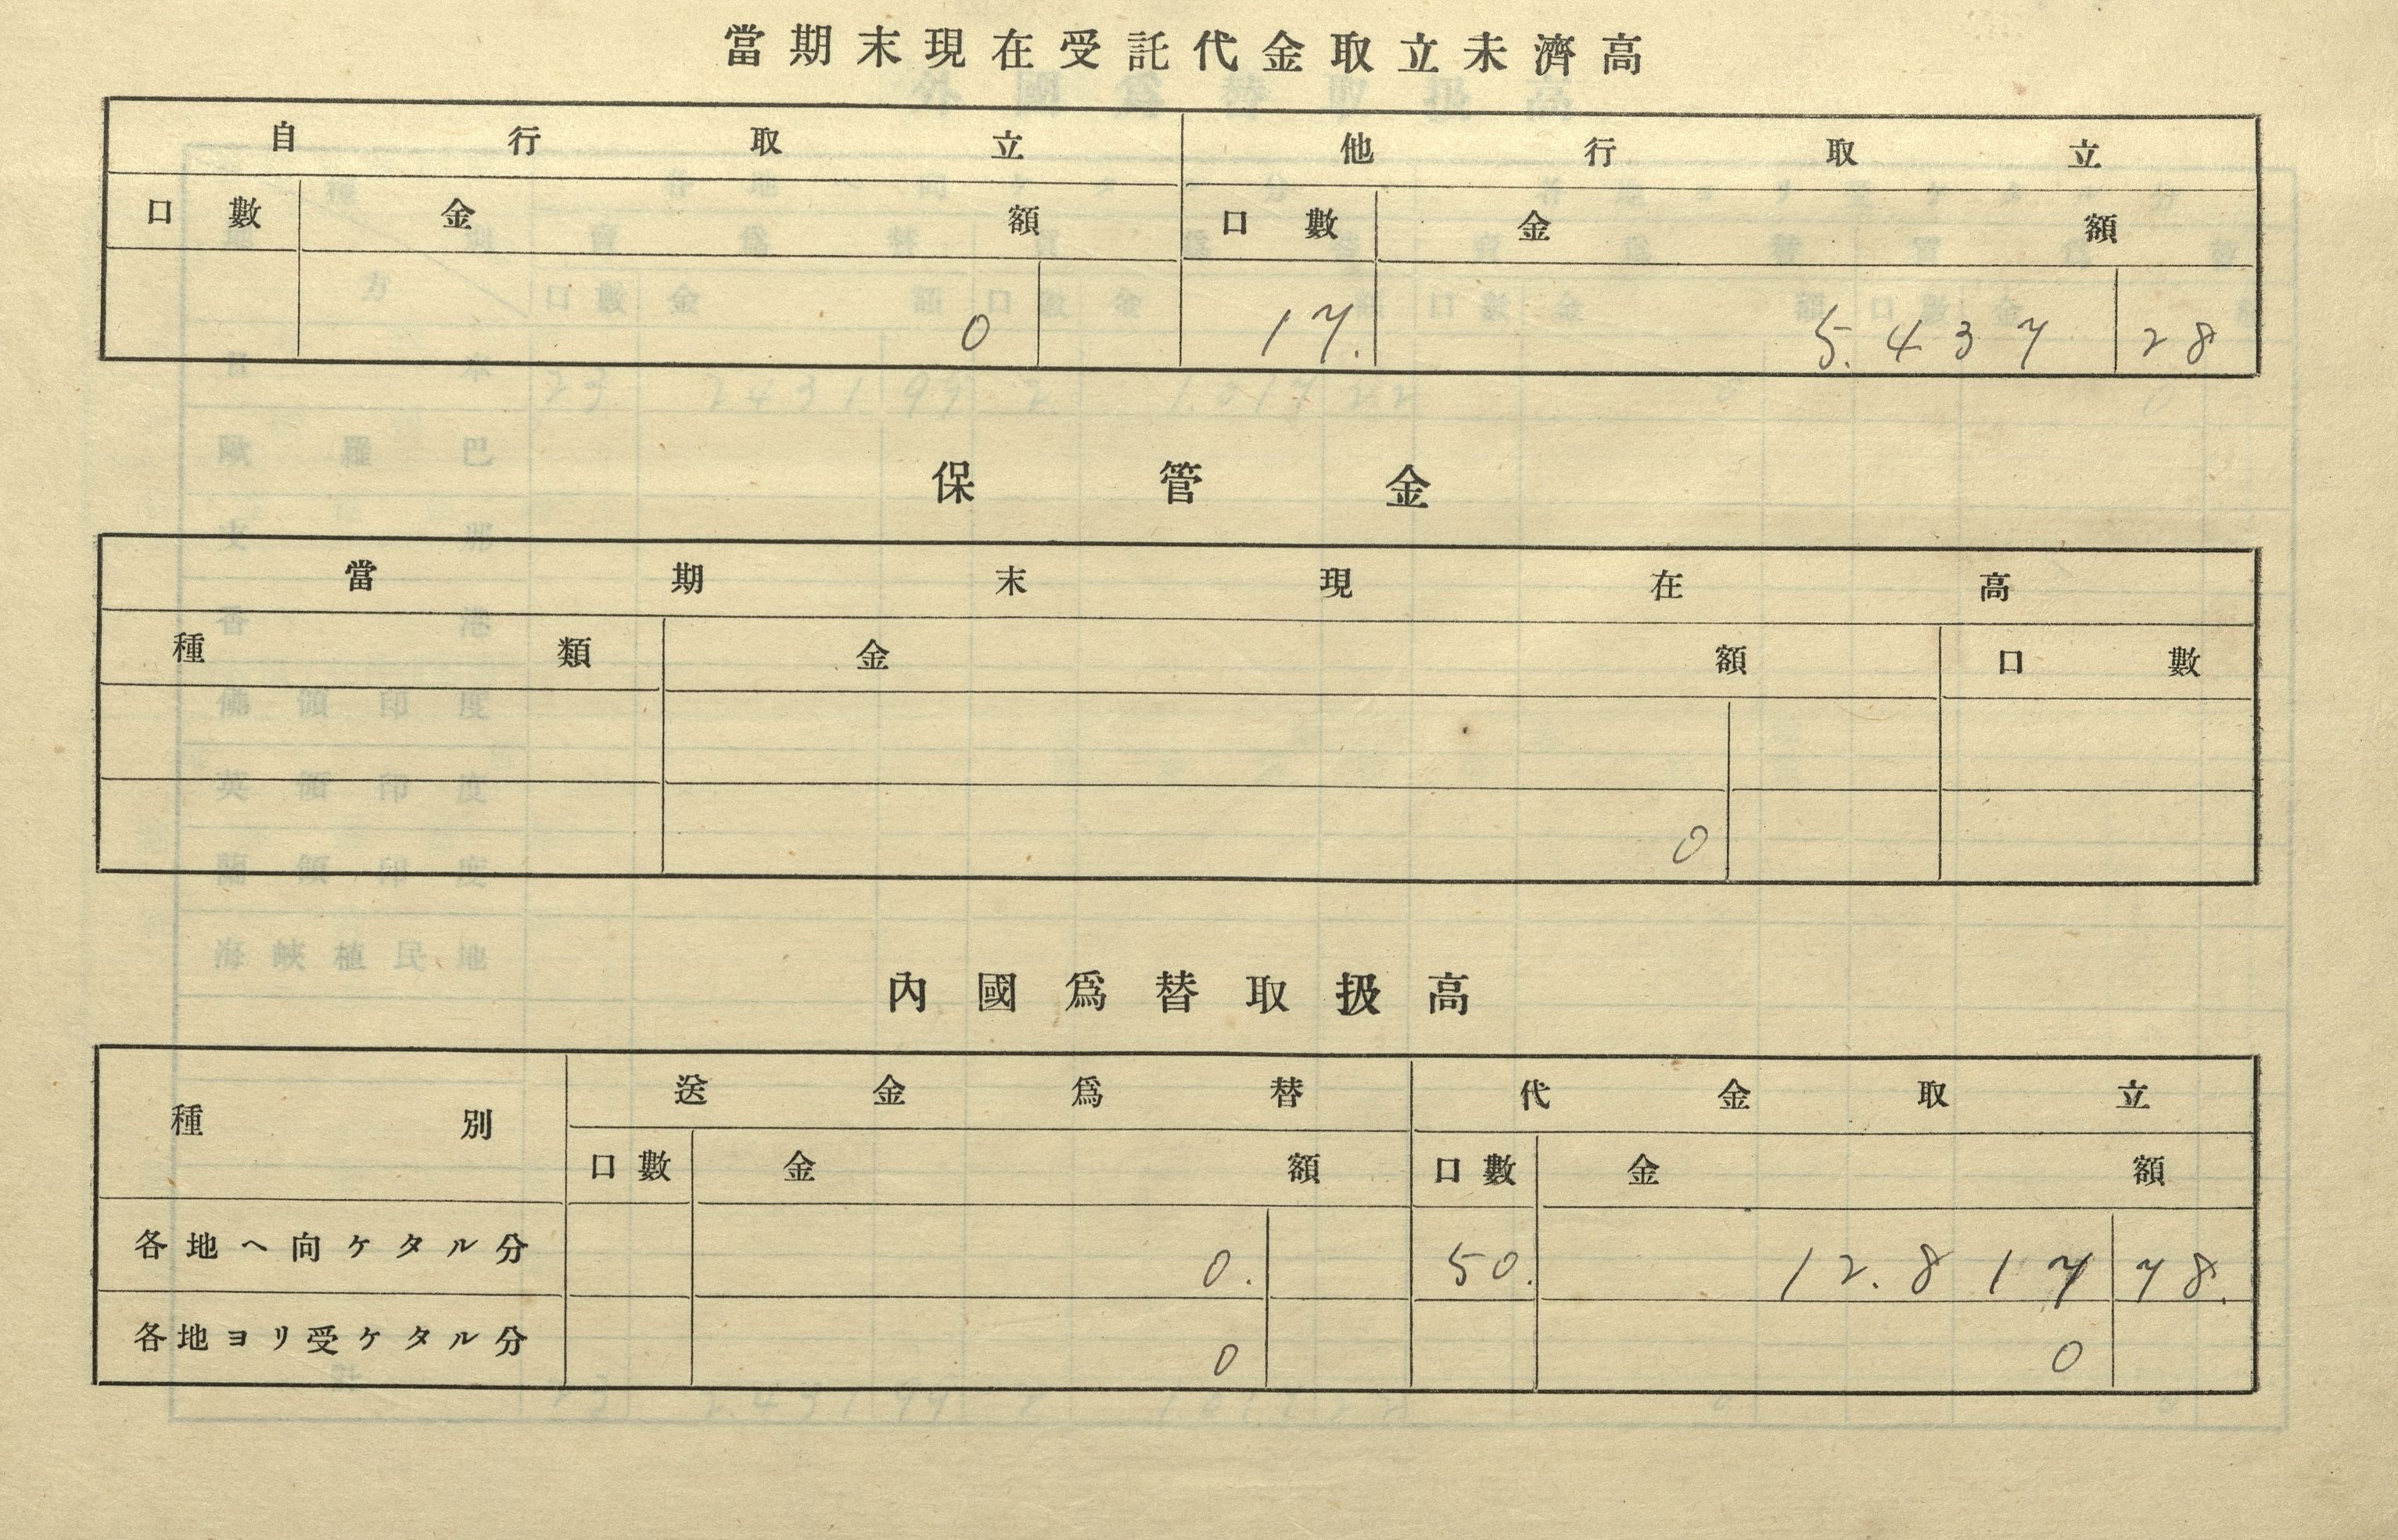 當期末現在受託代金取立未濟高
自行取立 他行取立
口數 金額 口數 金額
0 17. 5.437 28
保管金
當期末現在高
種類 金額 口數
0
內國爲替取扱高
種別 送金爲替 代金取立
口數 金額 口數 金額
各地ヘ向ケタル分 0. 50. 12.817 78.
各地ヨリ受ケタル分 0 0